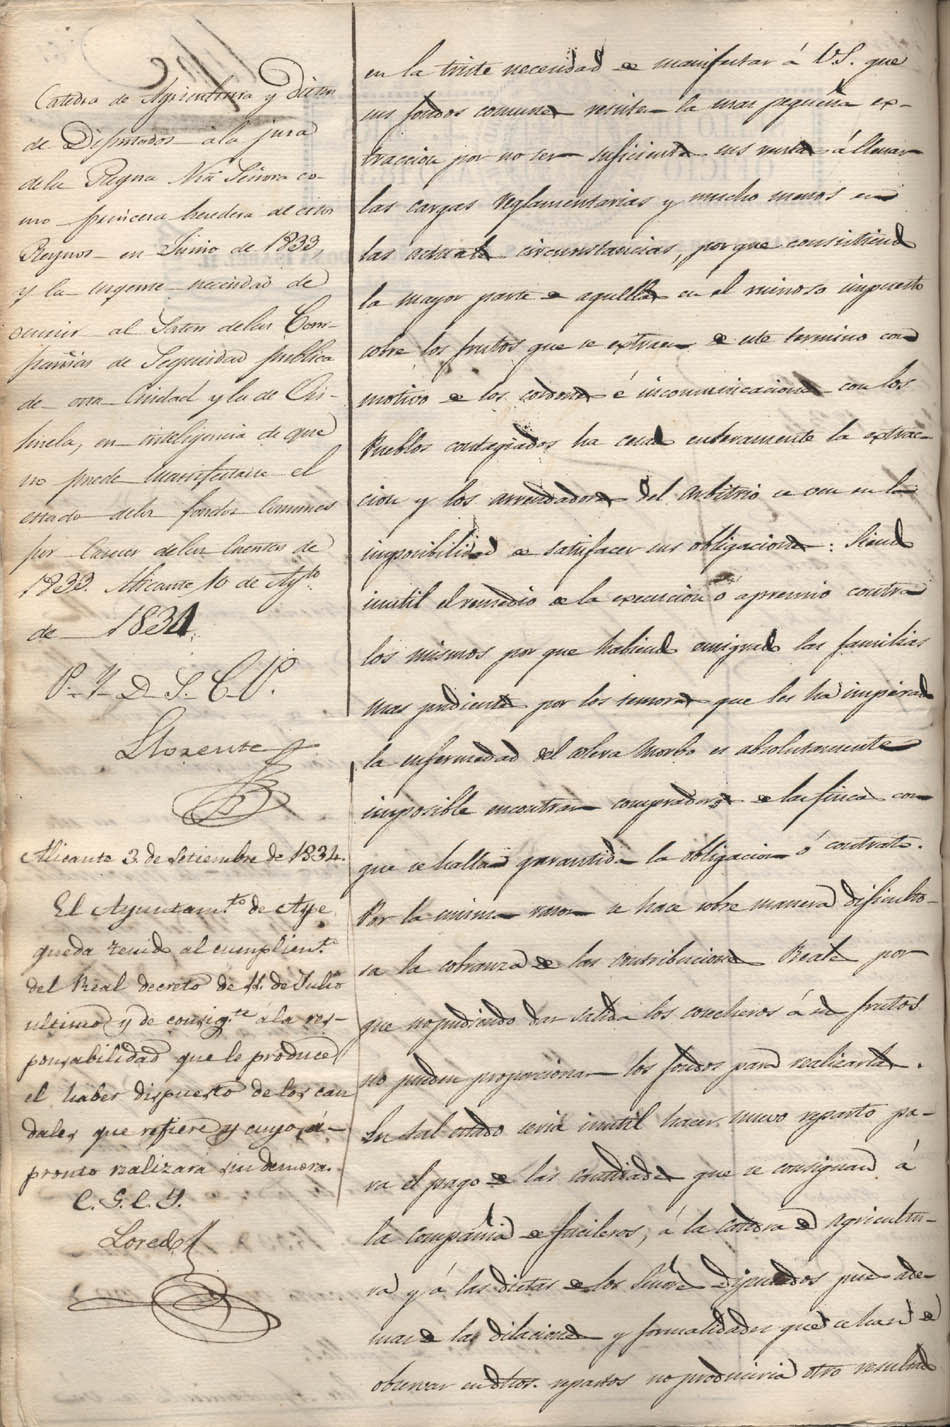 Catedra de Agricultura y Dietas
de Diputados a la jura
de la Reyna Ntra Señora co-
mo primera heredera de estos
Reynos en Junio de 1833
y la urgente necesidad de
ocurrir al haber de las Com-
pañias de Seguridad publica
de esta Ciudad y la de Ori-
huela, en inteligencia de que
no puede manifestarse el
estado de los fondos Comunes
por carecer de las Cuentas de
1833. Alicante 16 de Agto
de 1834.
P. Y. D. S. C. P.
Llorente
Alicante 3 de Setiembre de 1834.
El Ayuntam.to de Aspe
queda tenido al cumplien.to
del Real decreto de 11 de Julio
ultimo y de consig.te á la res-
ponsabilidad que le produce
el haber dispuesto de los cau
dales que refiere y cuyo á-
pronto realizará sin demora.
C. G. C. Y.
Loredo
en la triste necesidad de manifestar á V.S. que
sus fondos comunes resisten la mas pequeña ex-
traccion por no ser suficientes sus rentas á llenar
las cargas reglamentarias y mucho menos en
las actuales circunstancias, porque consistiendo
la mayor parte de aquellas en el ruinoso impuesto
sobre los frutos que se extraen de este termino con
motivo de los cordones é incomunicaciones con los
Pueblos contagiados ha cesado enteramente la extrac-
cion y los arrendadores del arbitrio se ven en la
imposibilidad de satisfacer sus obligaciones: Siendo
inutil el remedio de la execucion ó apremio contra
los mismos por que habiendo emigrado las familias
mas pudientes por los temores que les ha inspirado
la enfermedad del colera morbo es absolutamente
imposible encontrar compradores de las fincas con
que se hallan garantida la obligacion ó contrato.
Por la misma razon se hace sobre manera dificulto-
sa la cobranza de las contribuciones Reales por
que no pudiendo dar salida los cosecheros á sus frutos
no pueden proporcionar los fondos para realizarlas.
En tal estado seria inutil hacer nuevo reparto pa-
ra el pago de las cantidades que se consignan á
la compañia de fusileros, á la catedra de agricultu-
ra y á las dietas de los Señores diputados pues ade-
mas de las dilaciones y formalidades que se han de
observar en dhos. repartos no produciria otro resultado